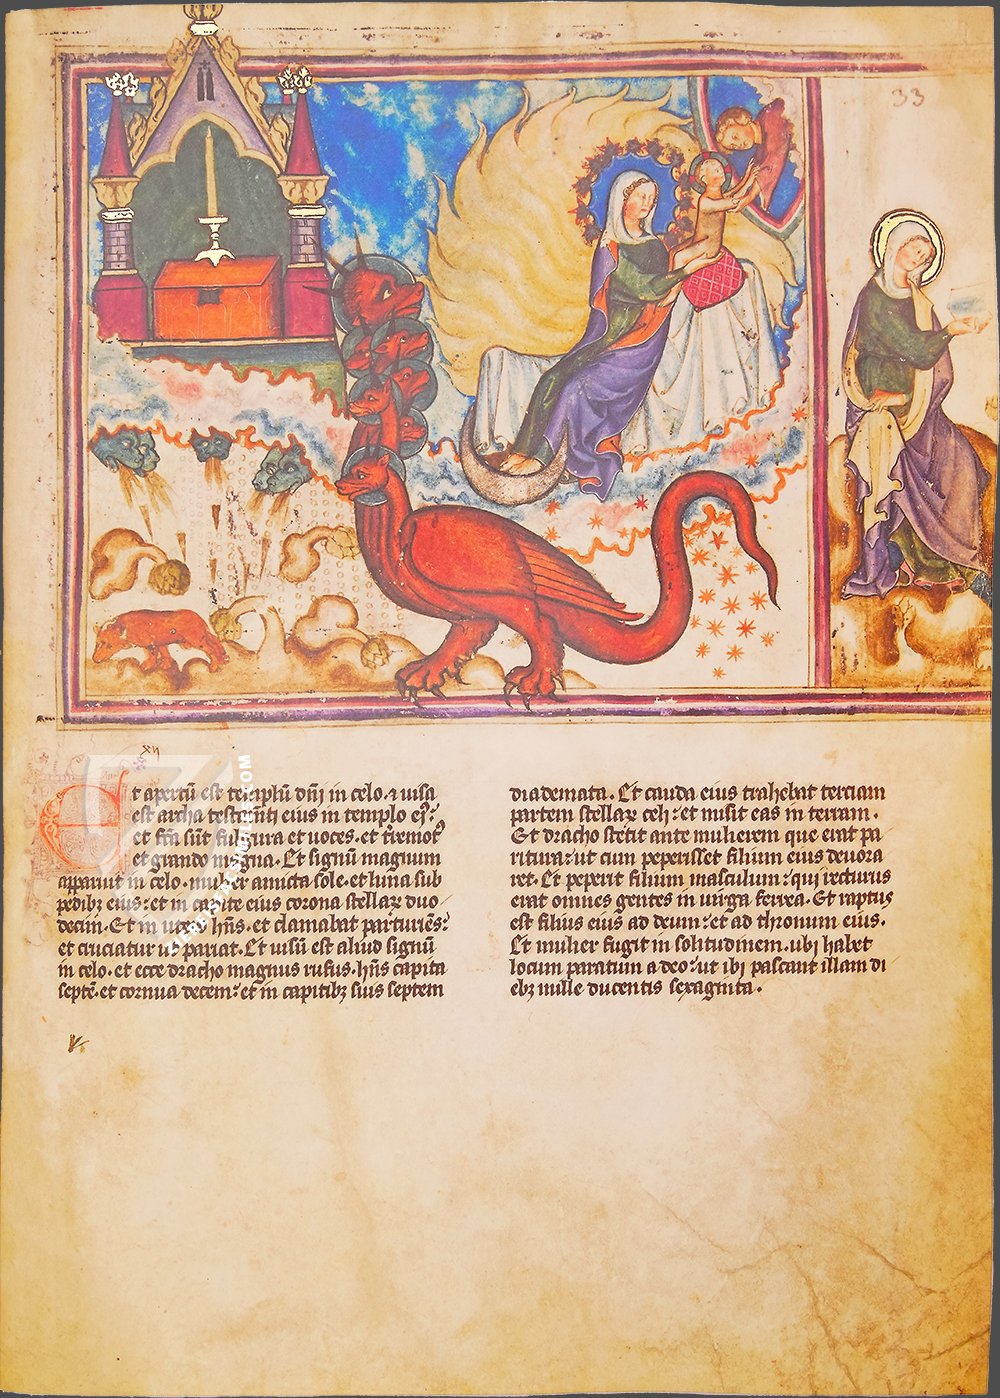 33
xii
Et apertū est templū dñi in celo. ⁊ uisa
est archa testam̄ti eius in templo ei⁹:
et fcā sūt fulgura et uoces. et t̄remot⁹
et grando magna. Et signū magnum
apparuit in celo. mulier amicta sole. et luna sub
pedibꝫ eius: et in capite eius corona stellaꝝ duo
decim. Et in utero hñs. et clamabat parturiēs:
et cruciatur ut pariat. Et uisū est aliud signū
in celo. et ecce dracho magnus rufus. hñs capita
septē. et cornua decem: et in capitibꝫ suis septem
diademata. Et cauda eius trahebat terciam
partem stellaꝝ celi: et misit eas in terram.
Et dracho stetit ante mulierem que erat pa
ritura: ut cum peperisset filium eius deuora
ret. Et peperit filium masculum: qui recturus
erat omnes gentes in uirga ferrea. Et raptus
est filius eius ad deum: et ad thronum eius.
Et mulier fugit in solitudinem. ubi habet
locum paratum a deo: ut ibi pascant illam di
ebꝫ mille ducentis sexaginta.